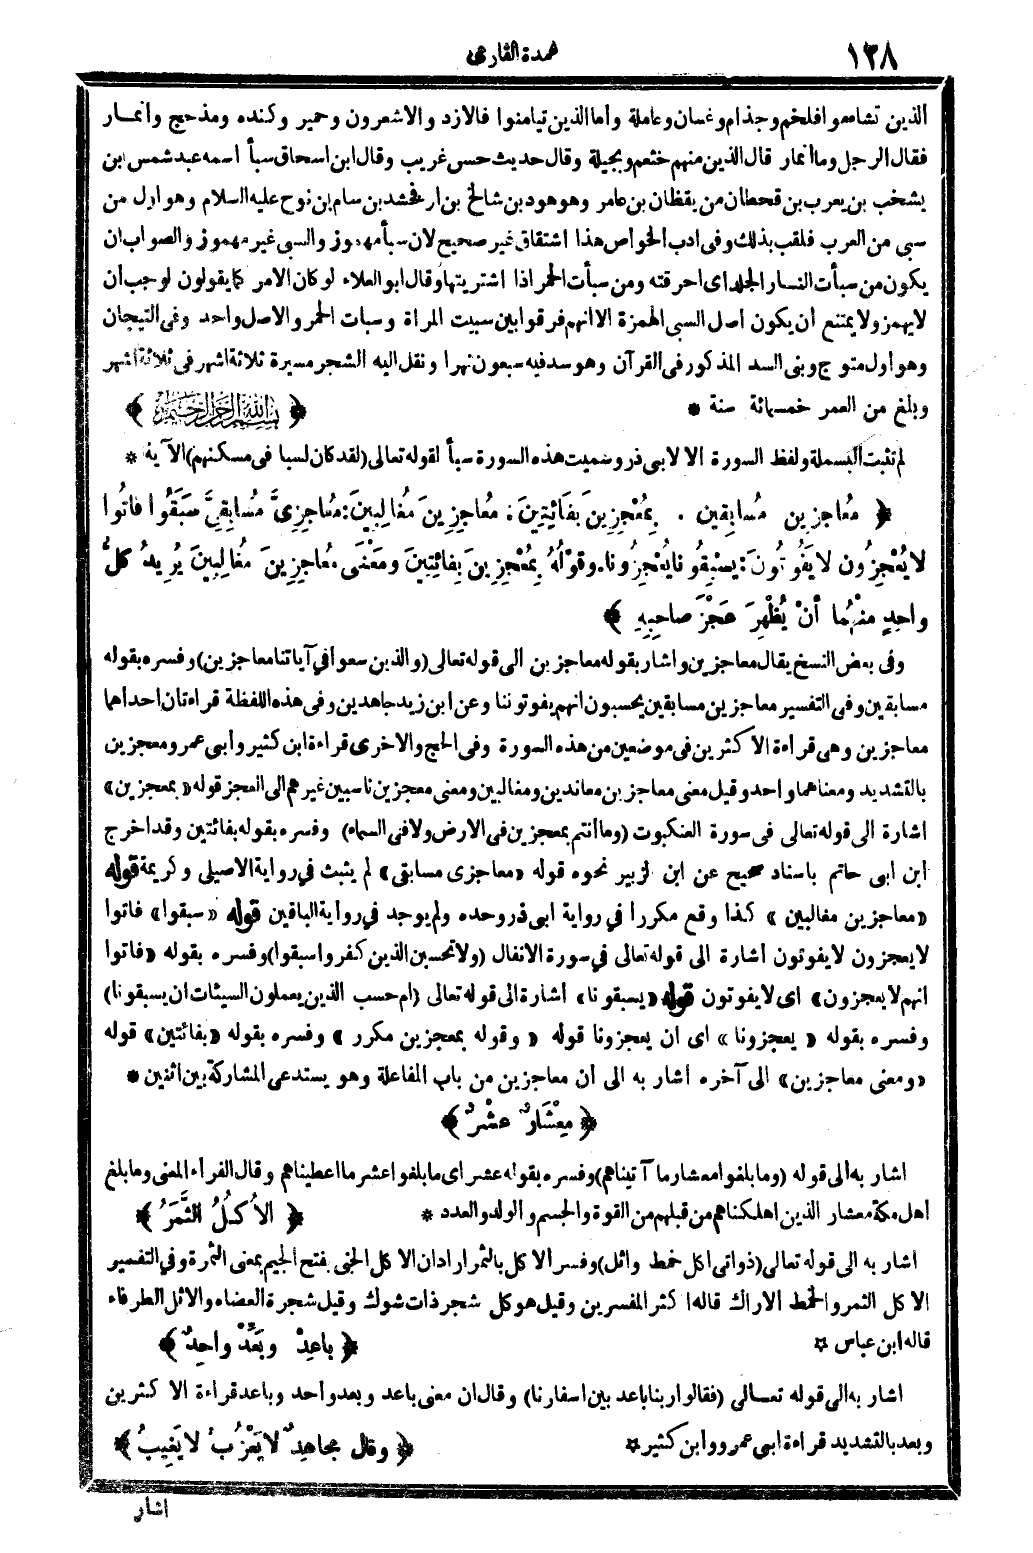 ١٢٨
عمدة القارى
الذين تشاءموا فلخم وجذام وغسان وعاملة وأما الذين تيامنوا فالازد والاشعرون وحمير وكنده ومذحج وانمار
فقال الرجل وما أنمار قال الذين منهم خثعم وبجيلة وقال حديث حسن غريب وقال ابن اسحاق سبأ اسمه عبد شمس ابن
يشخب بن يعرب بن قحطان من يقظان بن عامر وهو هود بن شالخ بن ارفخشد بن سام بن نوح عليه السلام وهو اول من
سبى من العرب فلقب بذلك وفى ادب الخواص هذا اشتقاق غير صحيح لان سبأ مهموز والسبى غير مهموز والصواب ان
يكون من سبأت النسار الجلد اى احرقته ومن سبأت الخمر اذا اشتريتها وقال ابو العلاء لو كان الامر كما يقولون لوجب أن
لا يهمز ولا يمتنع أن يكون اصل السبى الهمزة الا انهم فرقوا بين سبيت المرأة وسبات الخمر والاصل واحد وفى التيجان
وهو أول متوج وبنى السد المذكور فى القرآن وهو سد فيه سبعون نهرا ونقل اليه الشجر مسيرة ثلاثة اشهر فى ثلاثة اشهر
وبلغ من العمر خمسمائة سنة * ﴿ بسم الله الرحمن الرحيم ﴾
لم تثبت البسملة ولفظ السورة الا لابى ذر وسميت هذه السورة سبأ لقوله تعالى (لقد كان لسبا فى مسكنهم) الآية *
﴿ مُعاجِزِينَ مُسابِقِين . بِمُعْجِزِينَ بِفَائِتِينَ . مُعاجِزِينَ مُغالِبِينَ: مُعاجِزِىَّ مُسابِقِىَّ سَبَقُوا فاتُوا
لا يُعْجِزُون لا يَفُوتُونَ: يَسْبِقُونا يُعْجِزُونا. وقَوْلُهُ بِمُعْجِزِينَ بِفائِتِينَ ومَعْنَى مُعاجِزِينَ مُغالِبِينَ يُرِيدُ كلُّ
واحِدٍ مِنْهُما أنْ يُظْهِرَ عَجْزَ صاحِبِهِ ﴾
وفى بعض النسخ يقال معاجزين واشار بقوله معاجزين الى قوله تعالى (والذين سعوا في آياتنا معاجزين) وفسره بقوله
مسابقين وفى التفسير معاجزين مسابقين يحسبون انهم يفوتوننا وعن ابن زيد جاهدين وفى هذه اللفظة قراءتان احداهما
معاجزين وهى قراءة الاكثرين فى موضعين من هذه السورة وفى الحج والاخرى قراءة ابن كثير وأبى عمرو معجزين
بالتشديد ومعناهما واحد وقيل معنى معاجزين معاندين ومغالبين ومعنى معجزين ناسبين غيرهم الى العجز قوله «بمعجزين»
اشارة الى قوله تعالى فى سورة العنكبوت (وما أنتم بمعجزين فى الارض ولا فى السماء) وفسره بقوله بفائتين وقد اخرج
ابن ابى حاتم باسناد صحيح عن ابن الزبير نحوه قوله «معاجزى مسابقى» لم يثبت في رواية الاصيلى وكريمة قوله
«معاجزين مغالبين» كذا وقع مكررا في رواية ابى ذر وحده ولم يوجد في رواية الباقين قوله «سبقوا» فاتوا
لا يعجزون لا يفوتون أشارة الى قوله تعالى في سورة الانفال (ولا تحسبن الذين كفروا سبقوا) وفسره بقوله «فاتوا
انهم لا يعجزون» اى لا يفوتون قوله «يسبقونا» أشارة الى قوله تعالى (ام حسب الذين يعملون السيئات ان يسبقونا)
وفسره بقوله «يعجزونا» اى ان يعجزونا قوله «وقوله بمعجزين مكرر» وفسره بقوله «بفائتين» قوله
«ومعنى معاجزين» الى آخره أشار به الى أن معاجزين من باب المفاعلة وهو يستدعى المشاركة بين اثنين *
﴿ مِعْشَارُ عُشْرُ ﴾
اشار به الى قوله (وما بلغوا معشار ما آتيناهم) وفسره بقوله عشر اى ما بلغوا عشر ما اعطيناهم وقال الفراء المعنى وما بلغ
أهل مكة معشار الذين اهلكناهم من قبلهم من القوة والجسم والولد والعدد * ﴿ الاُكُلُ الثَّمَرُ ﴾
اشار به الى قوله تعالى (ذواتى اكل خمط واثل) وفسر الاكل بالثمر اراد ان الاكل الجنى بفتح الجيم بمعنى الثمرة وفي التفسير
الاكل الثمر والخمط الاراك قاله اكثر المفسرين وقيل هو كل شجر ذات شوك وقيل شجرة العضاه والاثل الطرفاء
قاله ابن عباس * ﴿ باعِدْ وبَعِّدْ واحِدٌ ﴾
اشار به الى قوله تعالى (فقالوا ربنا باعد بين اسفارنا) وقال ان معنى باعد وبعد واحد وباعد قراءة الاكثرين
وبعد بالتشديد قراءة ابى عمرو وابن كثير * ﴿ وقال مجاهِدٌ لا يَعْزُبُ لا يَغِيبُ ﴾
اشار